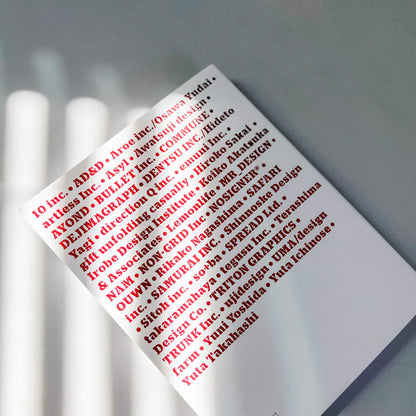 10 inc. • AD&D • Aroe inc./Osawa Yudai •
artless Inc. • Asyl • Awatsuji design •
AYOND • BULLET Inc. • COMMUNE •
DEJIMAGRAPH • DENTSU INC./Hideto
Yagi • direction Q inc. • emuni Inc. •
gift unfolding casually • Hiroko Sakai •
Irobe Design Institute • Keiko Akatsuka
& Associates • Lemonlife • MR_DESIGN •
NAM • NON-GRID Inc • NOSIGNER •
OUWN • Rikako Nagashima • SAFARI
inc. • SAMURAI INC. • Shinnoske Design
• Sitoh inc. • so+ba • SPREAD Ltd. •
takaramahaya • tegusu Inc. • Terashima
Design Co. • TRITON GRAPHICS •
TRUNK Inc. • ujidesign • UMA/design
farm • Yani Yoshida • Yuta Ichinose •
Yuta Takahashi